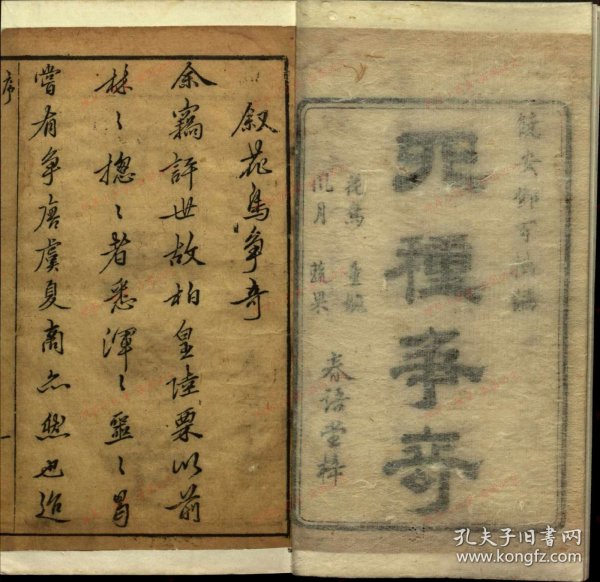 饒安鄧百拙編
四種爭奇
花鳥 童婉
風月 蔬果
春語堂梓
叙花鳥爭奇
余竊評世故柏皇陸栗以前
林〻摠〻者悉渾〻噩〻曷
嘗有爭唐虞夏商亦然也迨
序
一
孔夫子旧书网
www.kongfz.com